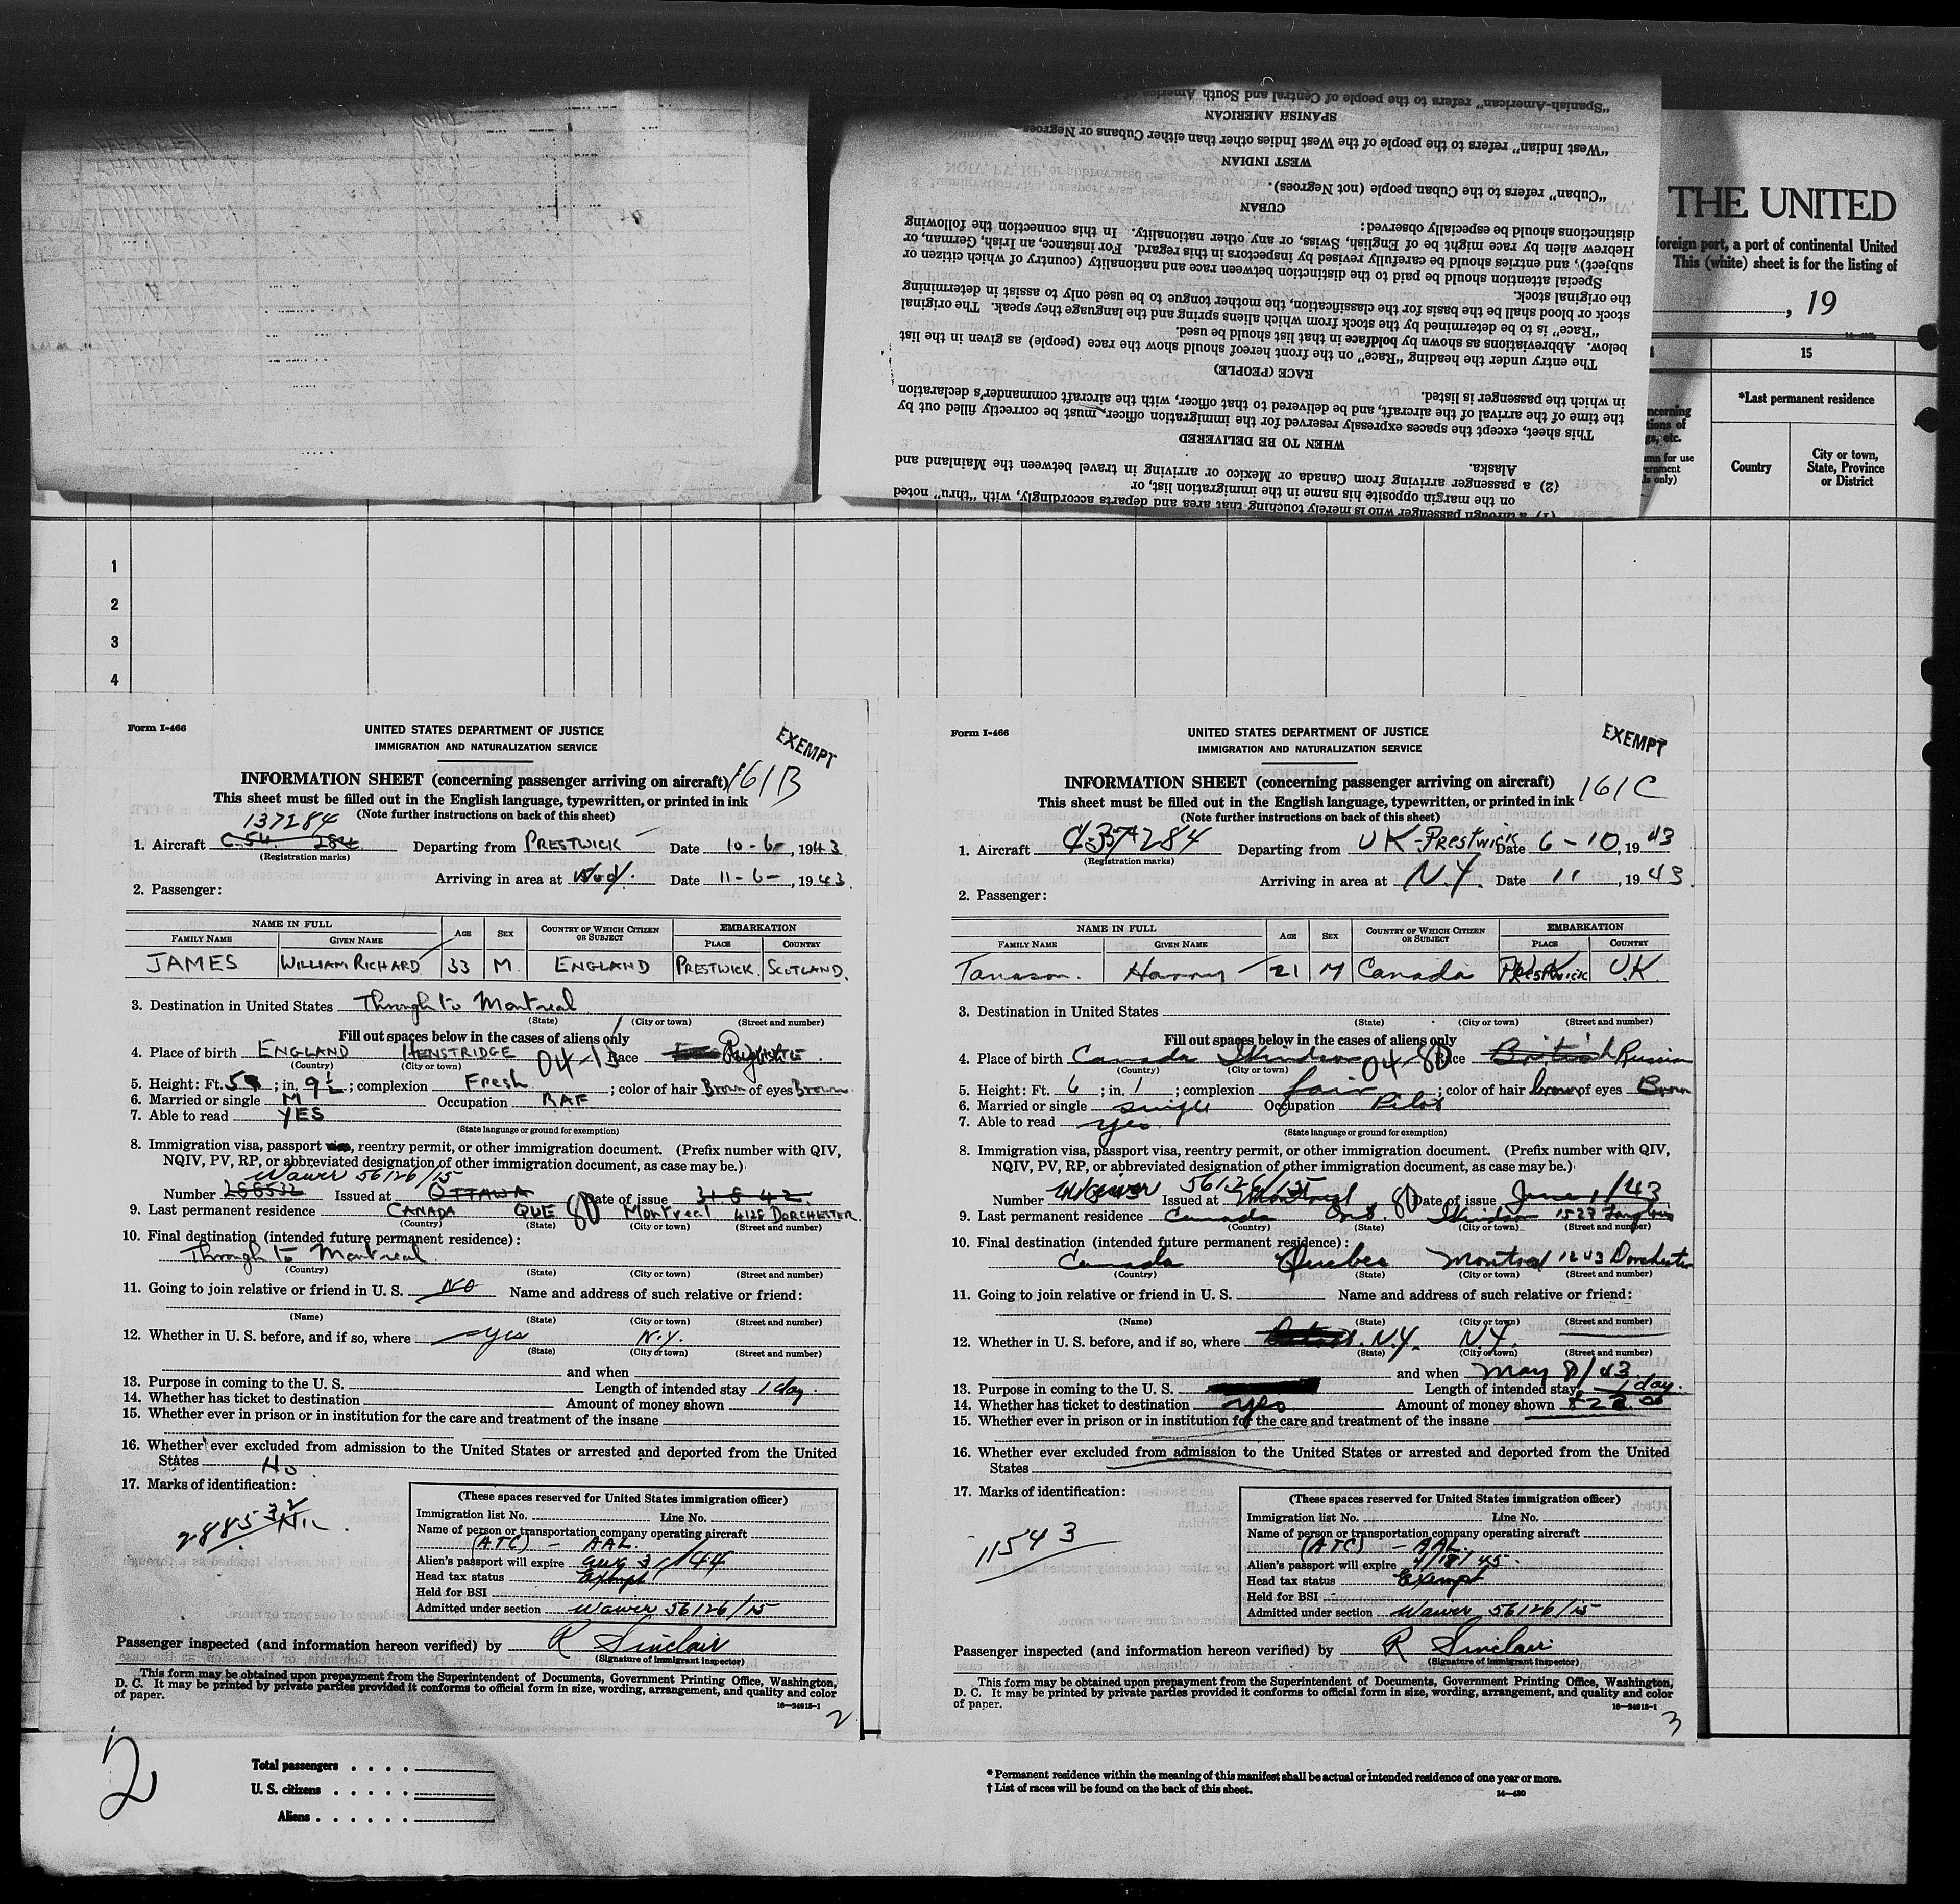 "Spanish-American" refers to the people of Central and South America
SPANISH AMERICAN
"West Indian" refers to the people of the West Indies other than either Cubans or Negroes
WEST INDIAN
"Cuban" refers to the Cuban people (not Negroes).
CUBAN
distinctions should be especially observed:
Hebrew alien by race might be of English, Swiss, or any other nationality. In this connection the following
subject), and entries should be carefully revised by inspectors in this regard. For instance, an Irish, German, or
Special attention should be paid to the distinction between race and nationality (country of which citizen or
the original stock.
stock or blood shall be the basis for the classification, the mother tongue to be used only to assist in determining
"Race" is to be determined by the stock from which aliens spring and the language they speak. The original
below. Abbreviations as shown by boldface in that list should be used.
The entry under the heading "Race" on the front hereof should show the race (people) as given in the list
RACE (PEOPLE)
in which the passenger is listed.
the time of the arrival of the aircraft, and be delivered to that officer, with the aircraft commander's declaration
This sheet, except the spaces expressly reserved for the immigration officer, must be correctly filled out by
WHEN TO BE DELIVERED
Alaska.
(2) a passenger arriving from Canada or Mexico or arriving in travel between the Mainland and
on the margin opposite his name in the immigration list, or
(1) a through passenger who is merely touching that area and departs accordingly, with "thru" noted
THE UNITED
foreign port, a port of continental United
This (white) sheet is for the listing of
, 19
15
*Last permanent residence
Country
City or town, State, Province or District
1
2
3
4
Form I-466
UNITED STATES DEPARTMENT OF JUSTICE
IMMIGRATION AND NATURALIZATION SERVICE
EXEMPT
INFORMATION SHEET (concerning passenger arriving on aircraft) 161B
This sheet must be filled out in the English language, typewritten, or printed in ink
(Note further instructions on back of this sheet)
137284
1. Aircraft C-54 284 Departing from PRESTWICK Date 10-6-, 1943
(Registration marks)
Arriving in area at Date 11-6-, 1943.
2. Passenger:
NAME IN FULL AGE SEX COUNTRY OF WHICH CITIZEN OR SUBJECT EMBARKATION
FAMILY NAME GIVEN NAME PLACE COUNTRY
JAMES WILLIAM RICHARD 33 M. ENGLAND PRESTWICK. SCOTLAND.
3. Destination in United States Through to Montreal
(State) (City or town) (Street and number)
Fill out spaces below in the cases of aliens only
4. Place of birth ENGLAND HENSTRIDGE 04-13 Race
(Country) (City or town)
5. Height: Ft. 5; in. 9½; complexion Fresh; color of hair Brown of eyes Brown
6. Married or single M Occupation RAF
7. Able to read YES
(State language or ground for exemption)
8. Immigration visa, passport visa, reentry permit, or other immigration document. (Prefix number with QIV,
NQIV, PV, RP, or abbreviated designation of other immigration document, as case may be.)
Waiver 56126/15
Number 288532 Issued at OTTAWA Date of issue 31-8-42.
9. Last permanent residence CANADA QUE 80 Montreal 4128 DORCHESTER.
(Country) (State) (City or town) (Street and number)
10. Final destination (intended future permanent residence):
Through to Montreal
(Country) (State) (City or town) (Street and number)
11. Going to join relative or friend in U. S. NO Name and address of such relative or friend:
(Name) (State) (City or town) (Street and number)
12. Whether in U. S. before, and if so, where yes N.Y.
(State) (City or town) (Street and number)
and when
13. Purpose in coming to the U. S. Length of intended stay 1 day.
14. Whether has ticket to destination Amount of money shown
15. Whether ever in prison or in institution for the care and treatment of the insane
16. Whether ever excluded from admission to the United States or arrested and deported from the United
States No
17. Marks of identification:
288532
Nil.
(These spaces reserved for United States immigration officer)
Immigration list No. Line No.
Name of person or transportation company operating aircraft
(ATC) - AAL.
Alien's passport will expire Aug 31/44
Head tax status Exempt
Held for BSI
Admitted under section Waiver 56126/15
Passenger inspected (and information hereon verified) by R Sinclair
(Signature of immigrant inspector)
This form may be obtained upon prepayment from the Superintendent of Documents, Government Printing Office, Washington,
D. C. It may be printed by private parties provided it conforms to official form in size, wording, arrangement, and quality and color
of paper.
16—24915-1
2
Form I-466
UNITED STATES DEPARTMENT OF JUSTICE
IMMIGRATION AND NATURALIZATION SERVICE
EXEMPT
INFORMATION SHEET (concerning passenger arriving on aircraft) 161C
This sheet must be filled out in the English language, typewritten, or printed in ink
(Note further instructions on back of this sheet)
1. Aircraft 284 Departing from UK-PRESTWICK Date 6-10, 1943
(Registration marks)
Arriving in area at N.Y. Date 11, 1943.
2. Passenger:
NAME IN FULL AGE SEX COUNTRY OF WHICH CITIZEN OR SUBJECT EMBARKATION
FAMILY NAME GIVEN NAME PLACE COUNTRY
Tanason. Harry 21 M Canada PRESTWICK U.K.
3. Destination in United States
(State) (City or town) (Street and number)
Fill out spaces below in the cases of aliens only
4. Place of birth Canada Windsor 04-80 Race British Russian
(Country) (City or town)
5. Height: Ft. 6; in. 1; complexion fair; color of hair brown of eyes Brown
6. Married or single single Occupation Pilot
7. Able to read yes
(State language or ground for exemption)
8. Immigration visa, passport visa, reentry permit, or other immigration document. (Prefix number with QIV,
NQIV, PV, RP, or abbreviated designation of other immigration document, as case may be.)
Waiver 56126/15
Number Issued at Montreal 80 Date of issue June 1/43
9. Last permanent residence Canada Ont. Windsor 1527
(Country) (State) (City or town) (Street and number)
10. Final destination (intended future permanent residence):
Canada Quebec Montreal 1243 Dorchester
(Country) (State) (City or town) (Street and number)
11. Going to join relative or friend in U. S. Name and address of such relative or friend:
(Name) (State) (City or town) (Street and number)
12. Whether in U. S. before, and if so, where N.Y. N.Y.
(State) (City or town) (Street and number)
and when May 8/43
13. Purpose in coming to the U. S. Length of intended stay 1 day.
14. Whether has ticket to destination yes Amount of money shown
15. Whether ever in prison or in institution for the care and treatment of the insane
16. Whether ever excluded from admission to the United States or arrested and deported from the United
States
17. Marks of identification:
11543
(These spaces reserved for United States immigration officer)
Immigration list No. Line No.
Name of person or transportation company operating aircraft
(ATC) - AAL.
Alien's passport will expire 4/18/45.
Head tax status Exempt
Held for BSI
Admitted under section Waiver 56126/15
Passenger inspected (and information hereon verified) by R Sinclair
(Signature of immigrant inspector)
This form may be obtained upon prepayment from the Superintendent of Documents, Government Printing Office, Washington,
D. C. It may be printed by private parties provided it conforms to official form in size, wording, arrangement, and quality and color
of paper.
16—24915-1
3
2
Total passengers
U. S. citizens
Aliens
* Permanent residence within the meaning of this manifest shall be actual or intended residence of one year or more.
† List of races will be found on the back of this sheet.
14—430